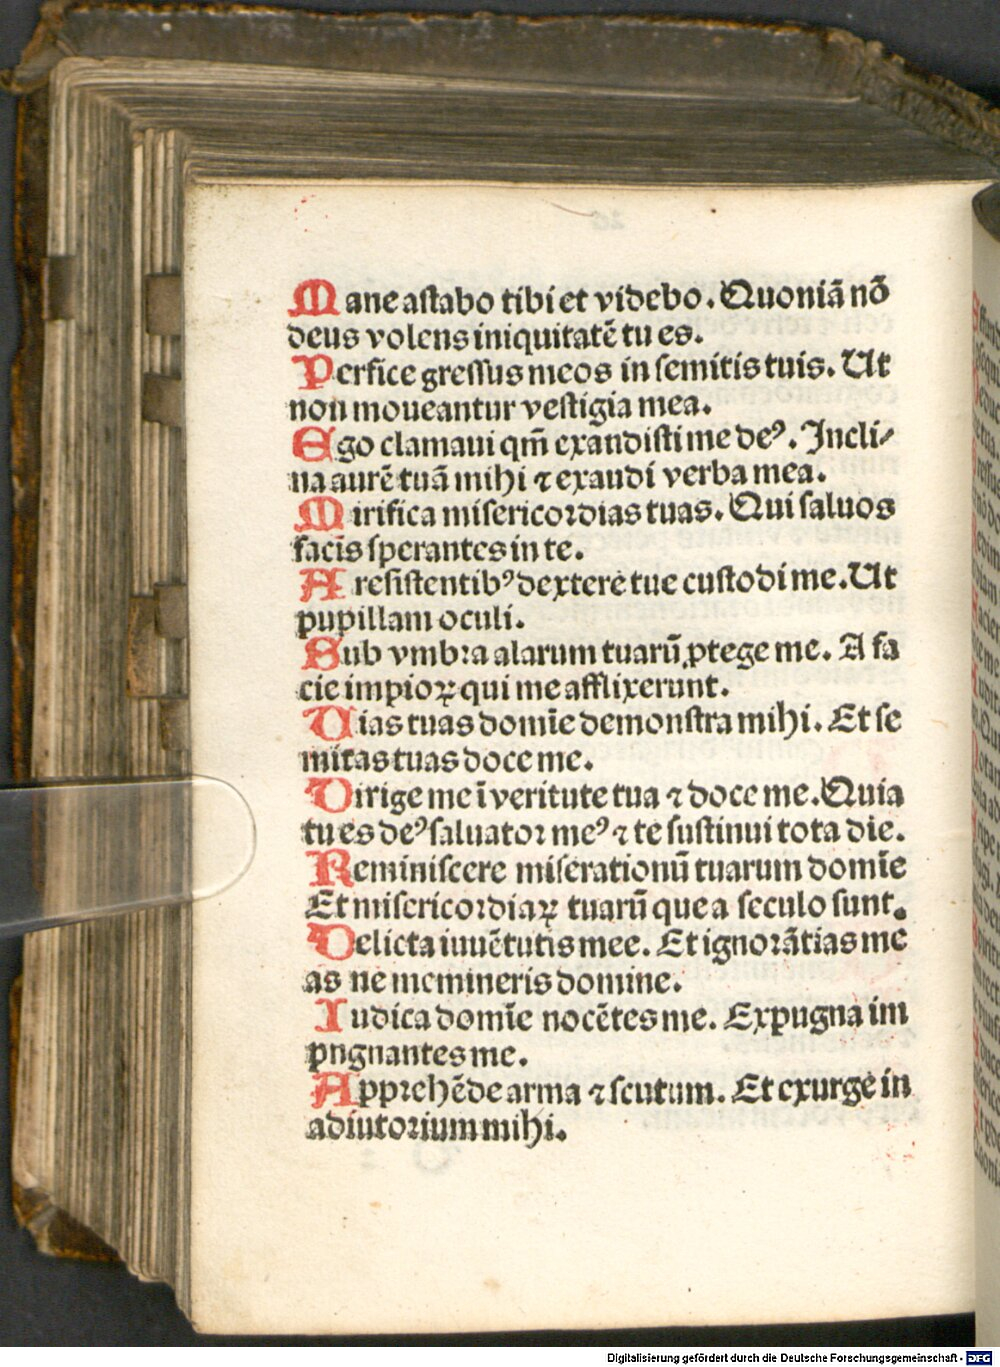 Mane astabo tibi et videbo. Quoniā nō
deus volens iniquitatē tu es.
Perfice gressus meos in semitis tuis. Ut
non moueantur vestigia mea.
Ego clamaui qm̄ exaudisti me deꝰ. Incli⸗
na aurē tuā mihi ⁊ exaudi verba mea.
Mirifica misericordias tuas. Qui saluos
facis sperantes in te.
A resistentibꝰ dextere tue custodi me. Ut
pupillam oculi.
Sub vmbra alarum tuarū ꝓtege me. A fa
cie impioꝝ qui me afflixerunt.
Vias tuas domīe demonstra mihi. Et se
mitas tuas doce me.
Dirige me ī veritute tua ⁊ doce me. Quia
tu es deꝰ saluator meꝰ ⁊ te sustinui tota die.
Reminiscere miserationū tuarum domīe
Et misericordiaꝝ tuarū que a seculo sunt.
Delicta iuuētutis mee. Et ignorātias me
as ne memineris domine.
Iudica domīe nocētes me. Expugna im
pngnantes me.
Apprehēde arma ⁊ scutum. Et exurge in
adiutorium mihi.
Digitalisierung gefördert durch die Deutsche Forschungsgemeinschaft - DFG